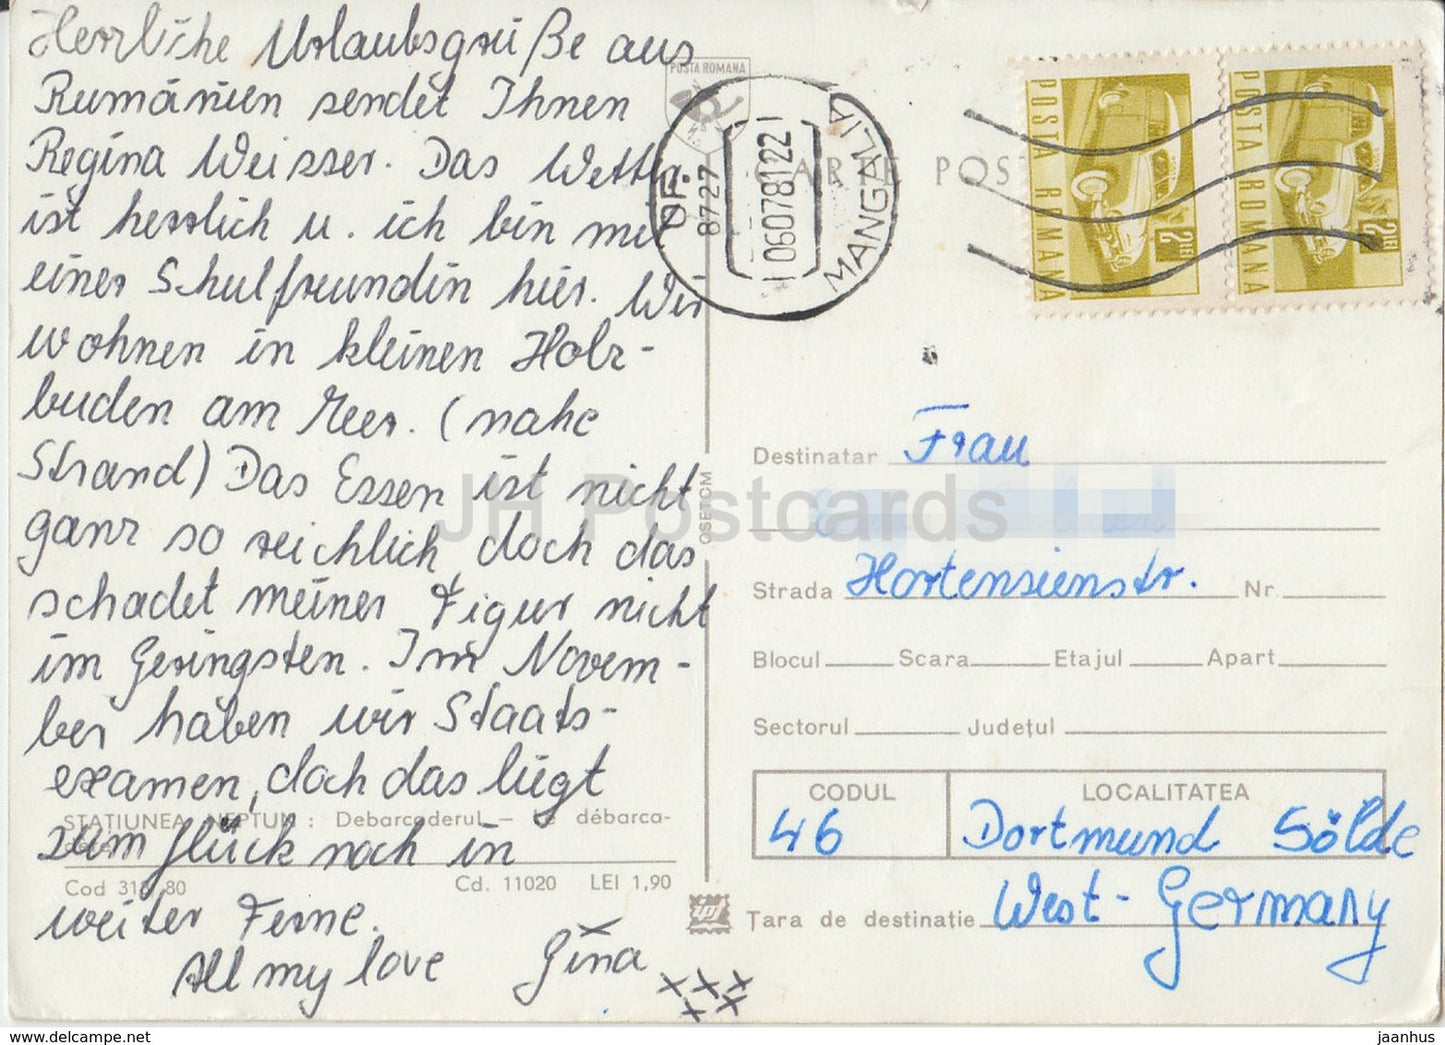 Herrliche Urlaubsgrüße aus
Rumänien sendet Ihnen
Regina Weisser. Das Wetter
ist herrlich u. ich bin mit
einer Schulfreundin hier. Wir
wohnen in kleinen Holz-
buden am Meer. (nahe
Strand) Das Essen ist nicht
ganz so reichlich, doch das
schadet meiner Figur nicht
im Geringsten. Im Novem-
ber haben wir Staats-
examen, doch das liegt
zum Glück noch in
weiter Ferne.
All my love Gina
xxxxx
STAȚIUNEA NEPTUN : Debarcaderul — débarca-
Cod 80
Cd. 11020 LEI 1,90
OSETCM
POSTA ROMANA
OF. 8727
06078122
MANGALIA
CARTE POS
POSTA ROMANA
2 LEI
POSTA ROMANA
2 LEI
Destinatar Frau
Strada Hortensienstr. Nr.
Blocul Scara Etajul Apart.
Sectorul Județul
CODUL LOCALITATEA
46 Dortmund Sölde
Țara de destinație West-Germany
JH Postcards
www.delcampe.net
jaanhus